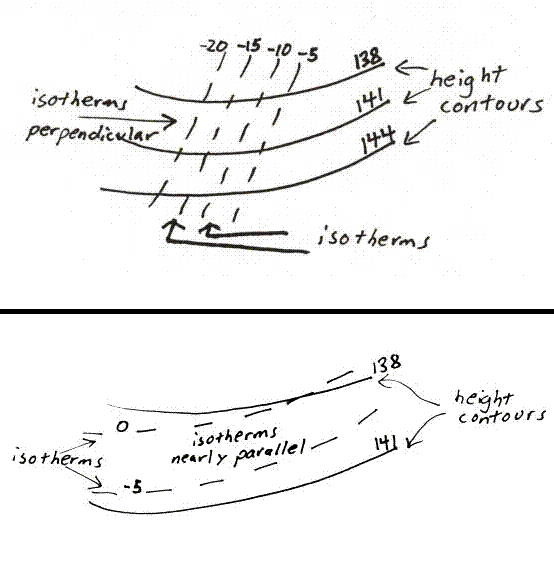 -20 -15 -10 -5
138
height
contours
isotherms
perpendicular
141
144
isotherms
138
height
contours
0
isotherms
nearly parallel
141
isotherms
-5